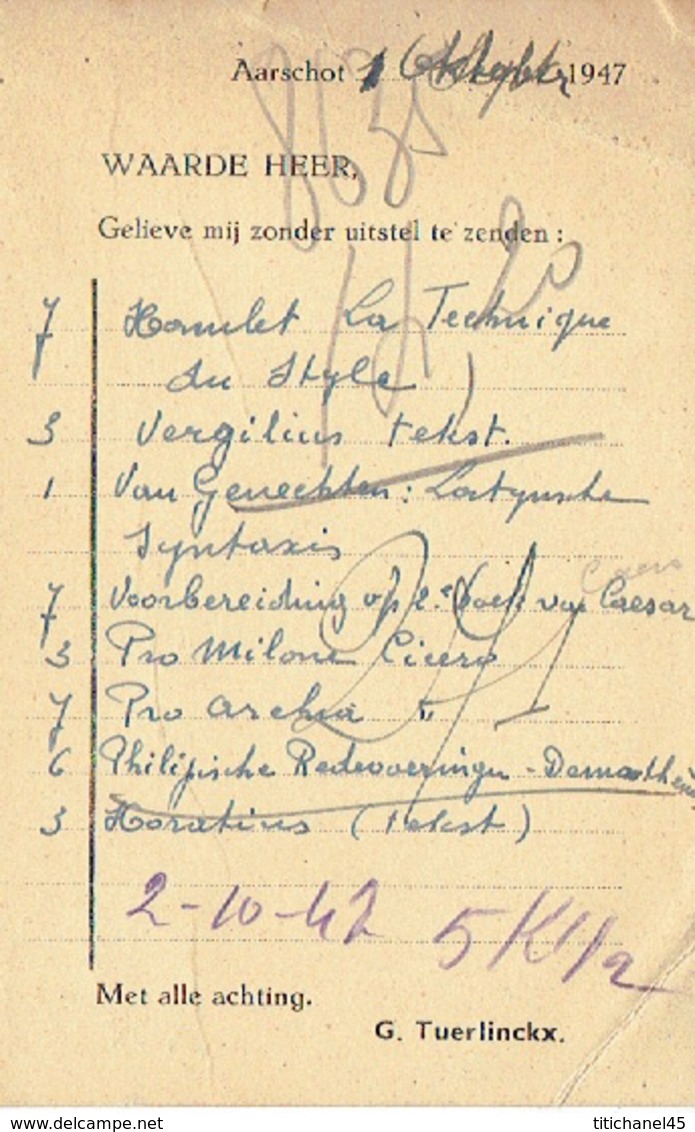 Aarschot 1 Oktober 1947
WAARDE HEER,
Gelieve mij zonder uitstel te zenden :
7 Hamlet La Technique
du Style )
3 Vergilius tekst.
1 Van Genechten : Latynsche
Syntaxis
7 Voorbereiding op 2e boek van Caesar
3 Pro Milone Cicero
7 Pro Archia "
6 Philipische Redevoeringen - Demosthenes
3 Horatius (tekst)
2-10-47 5 K 1/2
Met alle achting.
G. Tuerlinckx.
titichanel45